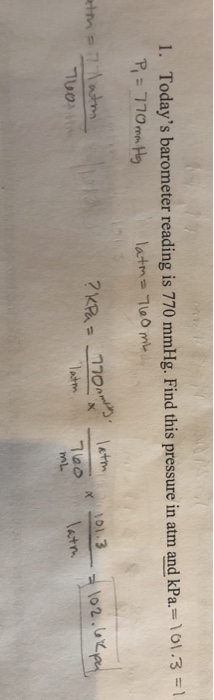 1. Today's barometer reading is 770 mmHg. Find this pressure in atm and kPa. = 101.3 = 1
P₁ = 770 mmHg 1atm = 760 mL
? kPa = 770 mmHg / 1atm x 1atm / 760 mL x 101.3 / 1atm = 102.6 kpa
atm = 1atm / 760